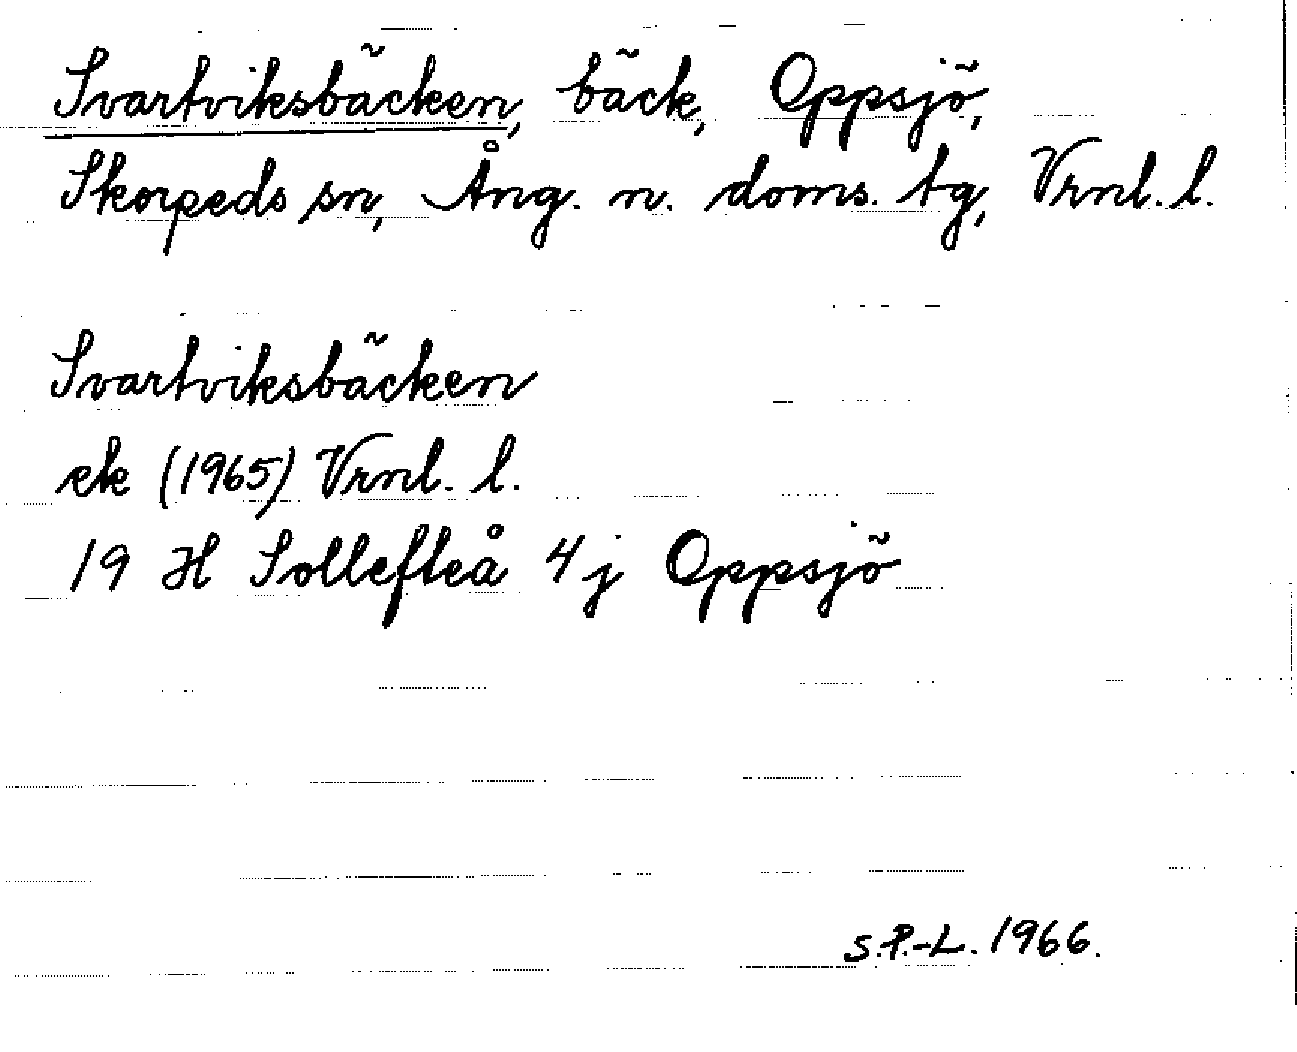 Svartviksbäcken, bäck, Oppsjö,
Skorpeds sn, Ång. n. doms. tg, Vrnl. l.
Svartviksbäcken
ek (1965) Vrnl. l.
19 H Sollefteå 4j Oppsjö
S.P.-L. 1966.